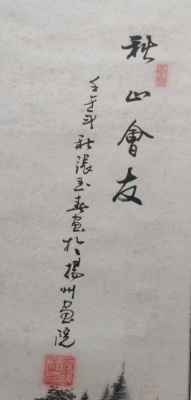 秋山會友
壬辰年秋張玉春畫於揚州畫院